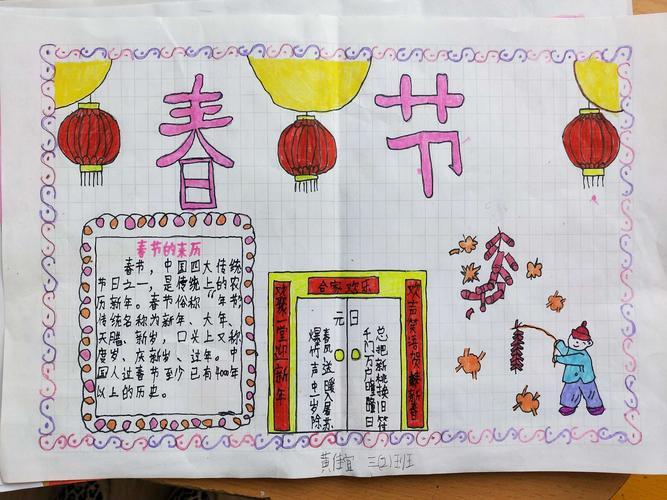 春节
春节的来历
春节，中国四大传统
节日之一，是传统上的农
历新年。春节俗称“年节”
传统名称为新年、大年、
天腊、新岁，口头上又称
度岁、庆新岁、过年。中
国人过春节至少已有4000年
以上的历史。
合家欢乐
欢聚一堂迎新年
欢声笑语贺新春
元日
爆竹声中一岁除
春风送暖入屠苏
千门万户曈曈日
总把新桃换旧符
黄佳宜 三(2)班